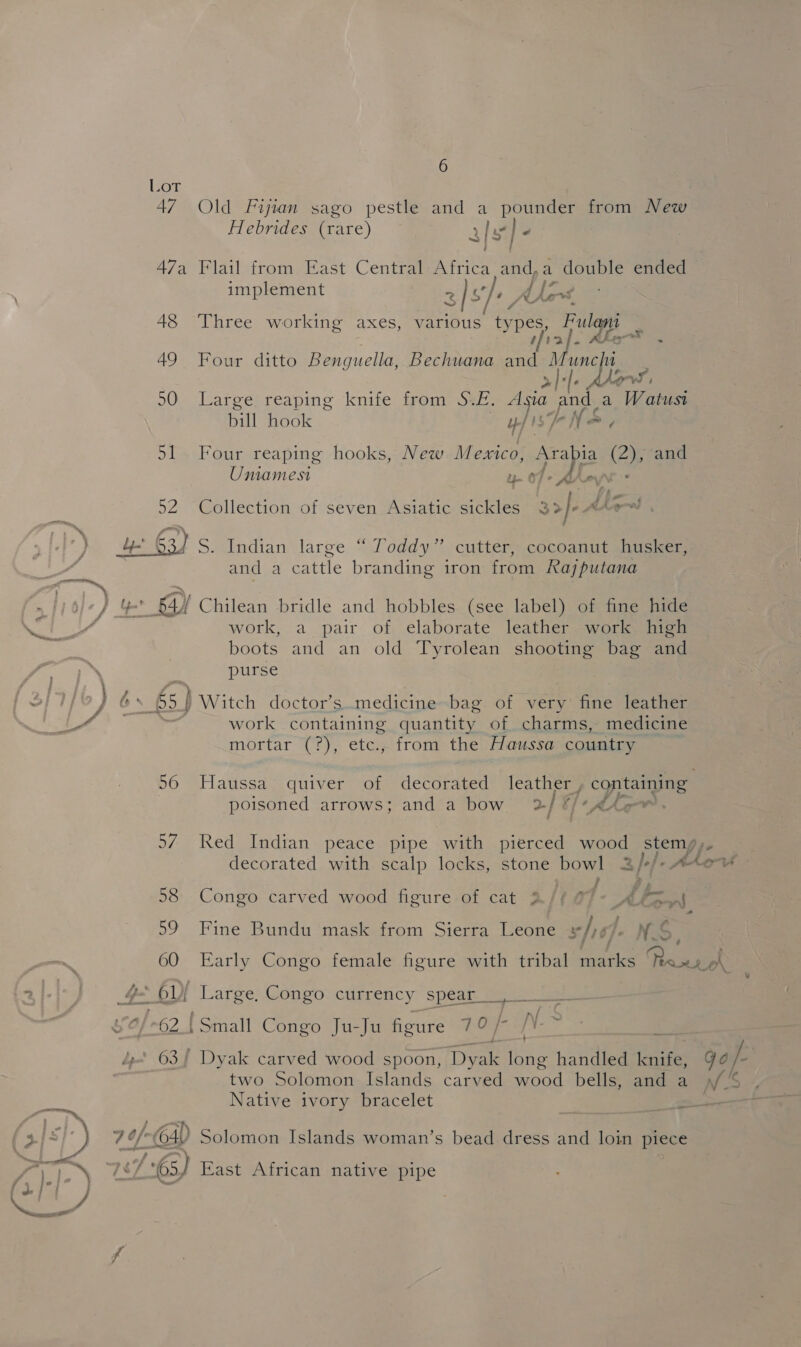 6
LOT
47 Old Fijian sago pestle and a pounder from New
Hebrides (rare)
47a Flail from East Central Africa and, a double ended
implement
48 Three working axes, various types, Fulani
49 Four ditto Benguella, Bechuana and Munchi
50 Large reaping knife from S.E. Asia and a Watusi
bill hook
51 Four reaping hooks, New Mexico, Arabia (2), and
Uniamesi
52 Collection of seven Asiatic sickles
53 S. Indian large "Toddy" cutter, cocoanut husker,
and a cattle branding iron from Rajputana
54 Chilean bridle and hobbles (see label) of fine hide
work, a pair of elaborate leather work high
boots and an old Tyrolean shooting bag and
purse
55 Witch doctor's medicine bag of very fine leather
work containing quantity of charms, medicine
mortar (?), etc., from the Haussa country
56 Haussa quiver of decorated leather, containing
poisoned arrows; and a bow
57 Red Indian peace pipe with pierced wood stem,
decorated with scalp locks, stone bowl
58 Congo carved wood figure of cat
59 Fine Bundu mask from Sierra Leone N.S.
60 Early Congo female figure with tribal marks
61 Large, Congo currency spear
62 Small Congo Ju-Ju figure 70/-
63 Dyak carved wood spoon, Dyak long handled knife,
two Solomon Islands carved wood bells, and a
Native ivory bracelet
64 Solomon Islands woman's bead dress and loin piece
65 East African native pipe